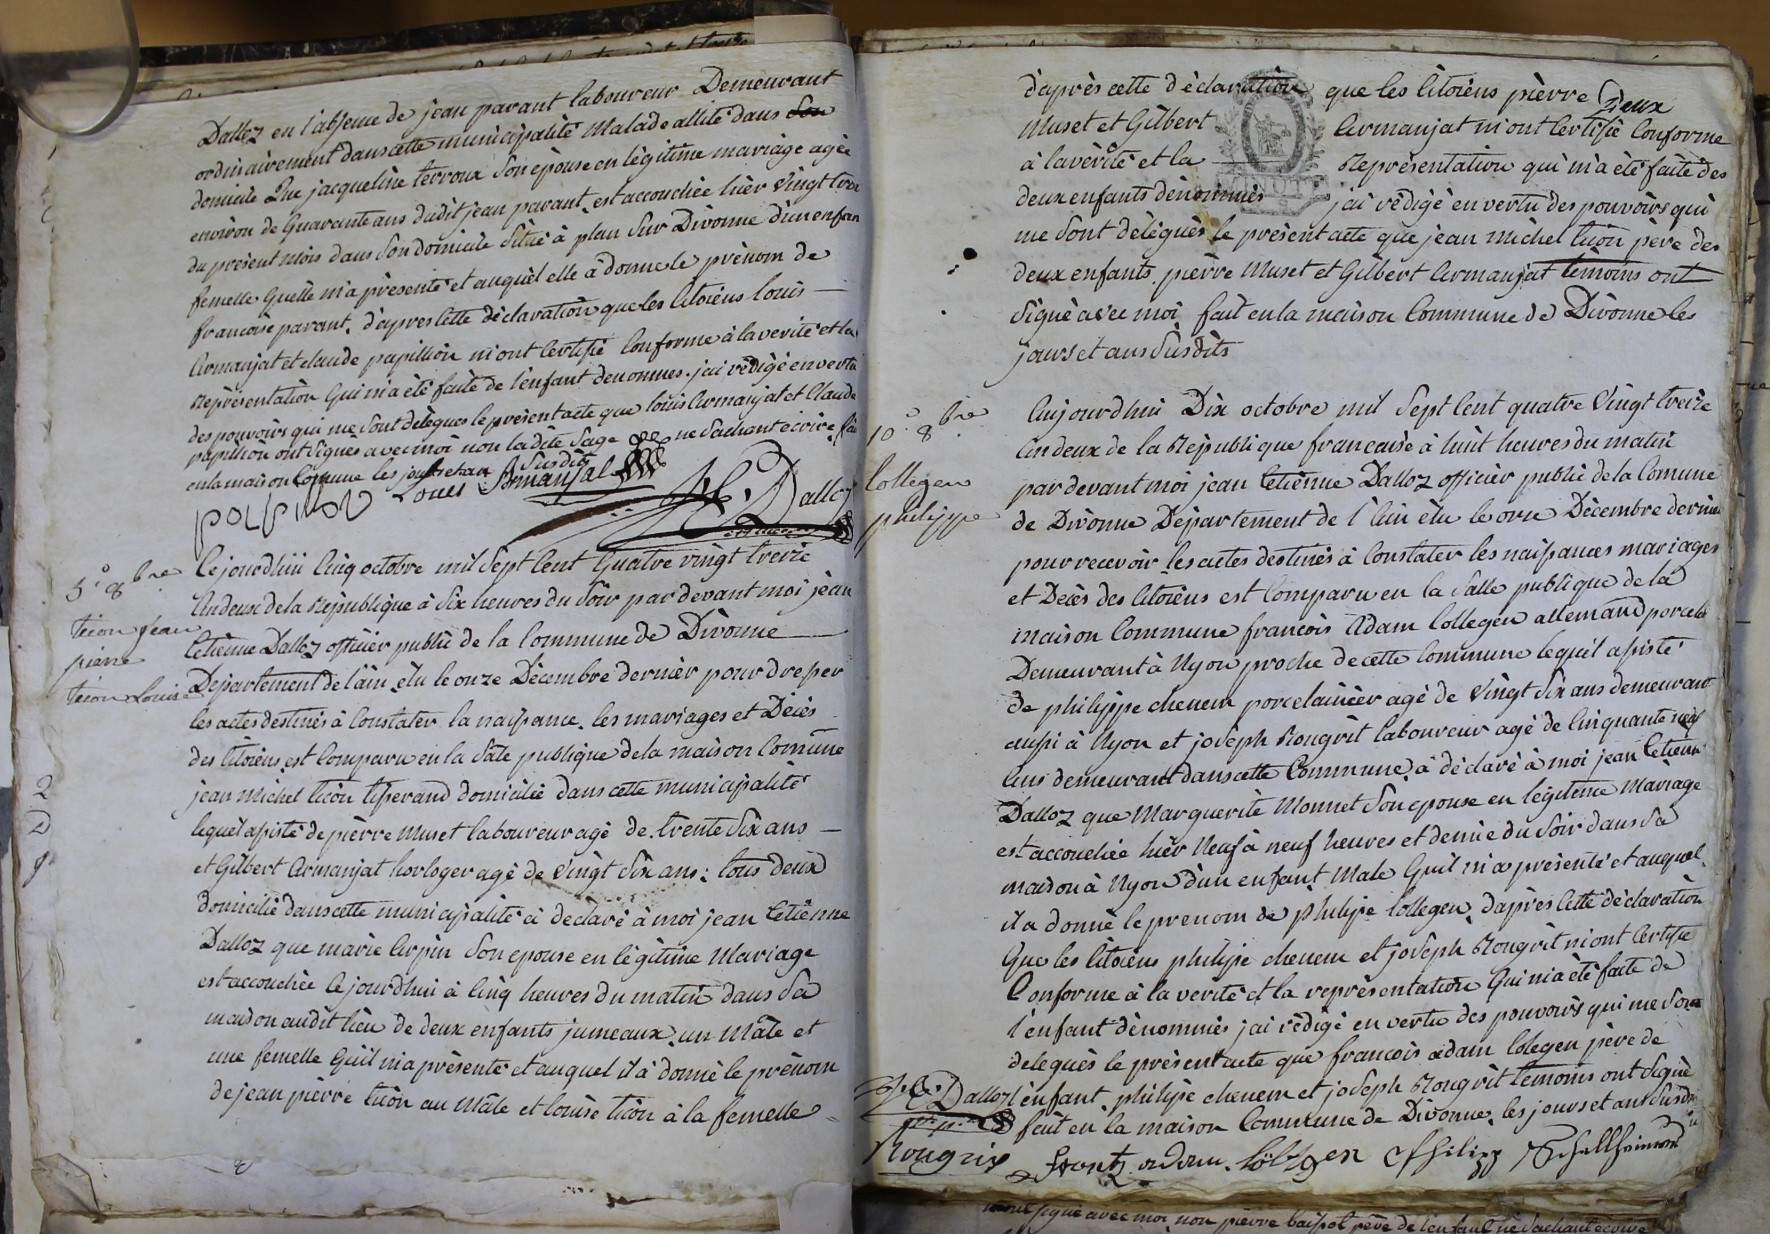 Dalloz en l'absence de jean pavant laboureur Demeurant
ordinairement dans cette municipalité Malade allité dans Son
domicile Que jacqueline terroux Son épouse en légitime mariage agée
environ de Quarante ans dudit jean pavant est accouchée hiér vingt trois
du présent mois dans Son domicile Situé à plan Sur Divonne d'un enfan
femelle Quelle m'a présenté et auquel elle à donné le prénom de
francoise pavant. d'apres Cette déclaration que les Citoiens louis
Armanjat et claude papillion m'ont Certifié Conforme à la verité et la
Représentation Qui m'a été faite de l'enfant denommés. j'ai rédigé en vertu
des pouvoirs qui me Sont délégués le présent acte que louis Armanjat et Claude
papillion ont Signés avec moi non la dite Sage ne Sachant écrire. fai
en la maison Commune les jour et an Susdits
Louis Armanjat
J. E. Dalloz
5.° 8.bre
ticon jean
pierre
ticon Louise
Cejourdhui Cinq octobre mil Sept Cent Quatre vingt treize
l'an deux de la République à Six heures du Soir par devant moi jean
Cetiénne Dalloz officier public de la Commune de Divonne
Departement de l'ain, élu le onze Décembre dernier pour dresser
les actes destinés à Constater la naissance. les mariages et Décès
des Citoiens est Comparu en la Sale publique de la maison Comune
jean michel ticon tisserand domicilié dans cette municipalité
lequel assisté de pièrre Muset laboureur agé de trente Six ans
et Gilbert Armanjat horloger agé de vingt Six ans: tous deux
domicilié dans cette municipalité à déclaré à moi jean Cetiénne
Dalloz que marie Arpin Son epouse en légitime Mariage
est accouchée le jourdhui à Cinq heures du matin dans Sa
maison audit lieu de deux enfants jumeaux. un Mâle et
une femelle Qu'il m'a présenté et auquel il à donné le prénom
de jean pièrre ticon au Mâle et louise ticon à la femelle
d'après cette déclaration que les Citoiens pièrre
Deux
Muset et Gilbert Armanjat m'ont Certifié Conforme
à la vérité et la Représentation qui m'a été faite des
deux enfants dénommés j'ai rédigé en vertu des pouvoirs qui
me Sont délégués le présent acte que jean michel ticon père des
deux enfants. pièrre Muset et Gilbert Armanjat temoins ont
Signé avec moi fait en la maison Commune de Divonne les
jours et an Susdits
10.° 8.bre
Collegen
philippe
Aujourdhui Dix octobre mil Sept Cent quatre Vingt treize
l'an deux de la République francaise à huit heures du matin
par devant moi jean Cetiénne Dalloz officier public de la Comune
de Divonne Département de l'Ain élu le onze Décembre dernier
pour recevoir les actes destinés à Constater les naissances mariages
et Décès des Citoiens est Comparu en la Salle publique de la
maison Commune francois Adam Collegen allemand porcela
Demeurant à Nyon proche de cette Commune lequel assisté
de philippe chenem porcelainier agé de vingt Six ans demeurant
aussi à Nyon et joseph Rougrit laboureur agé de Cinquante neuf
ans demeurant dans cette Commune, à déclaré à moi jean Cetienne
Dalloz que Marguerite Monnet Son epouse en légitime Mariage
est accouchée hiér Neuf à neuf heures et demie du Soir dans Sa
maison à Nyon d'un enfant Male Qu'il m'a présenté et auquel
il a donné le prenom de Philipe Collegen. d'après Cette déclaration
Que les Citoiens philipe chenem et joseph Rougrit m'ont Certifié
Conforme à la verité et la représentation Qui m'a été faite de
l'enfant dénommés j'ai rédigé en vertu des pouvoirs qui me Sont
delegués le présent acte que francois adam Colegen père de
l'enfant, philipe chenem et joseph Rougrit temoins ont Signé
J. E. Dalloz
fait en la maison Commune de Divonne. les jours et an Susdits
Rougrix
Frantz adam
Philipp
mont signé avec moi non pierre baissot père de l'enfant ne Sachant écrire